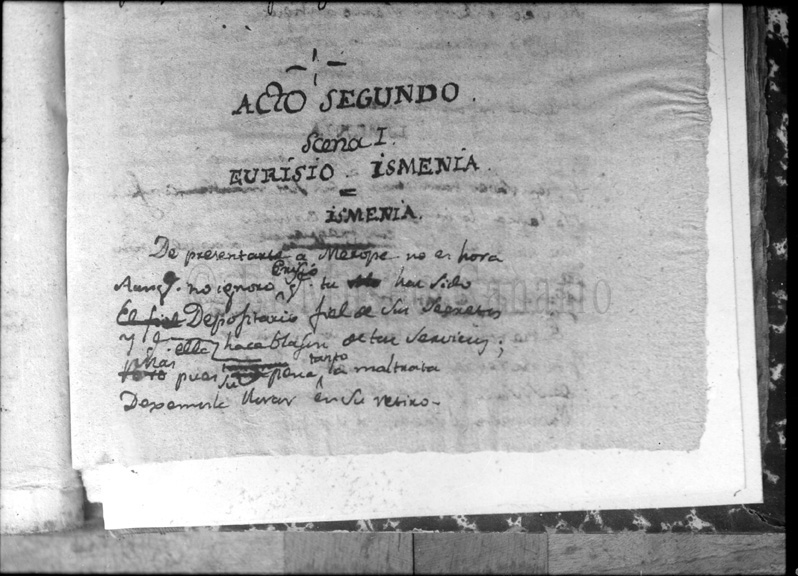 ACTO SEGUNDO.
Scena I.
EURISIO. ISMENIA.
=
ISMENIA.
De presentarte a Merope no es hora
Aunq.e no ignoro, Eurisio q.e tu has sido
El fiel Depositario fiel de sus secretos
y q.e ella hace blason de tus servicios;
pues su pena tanto la maltrata
Dexemosla llorar en su retiro.